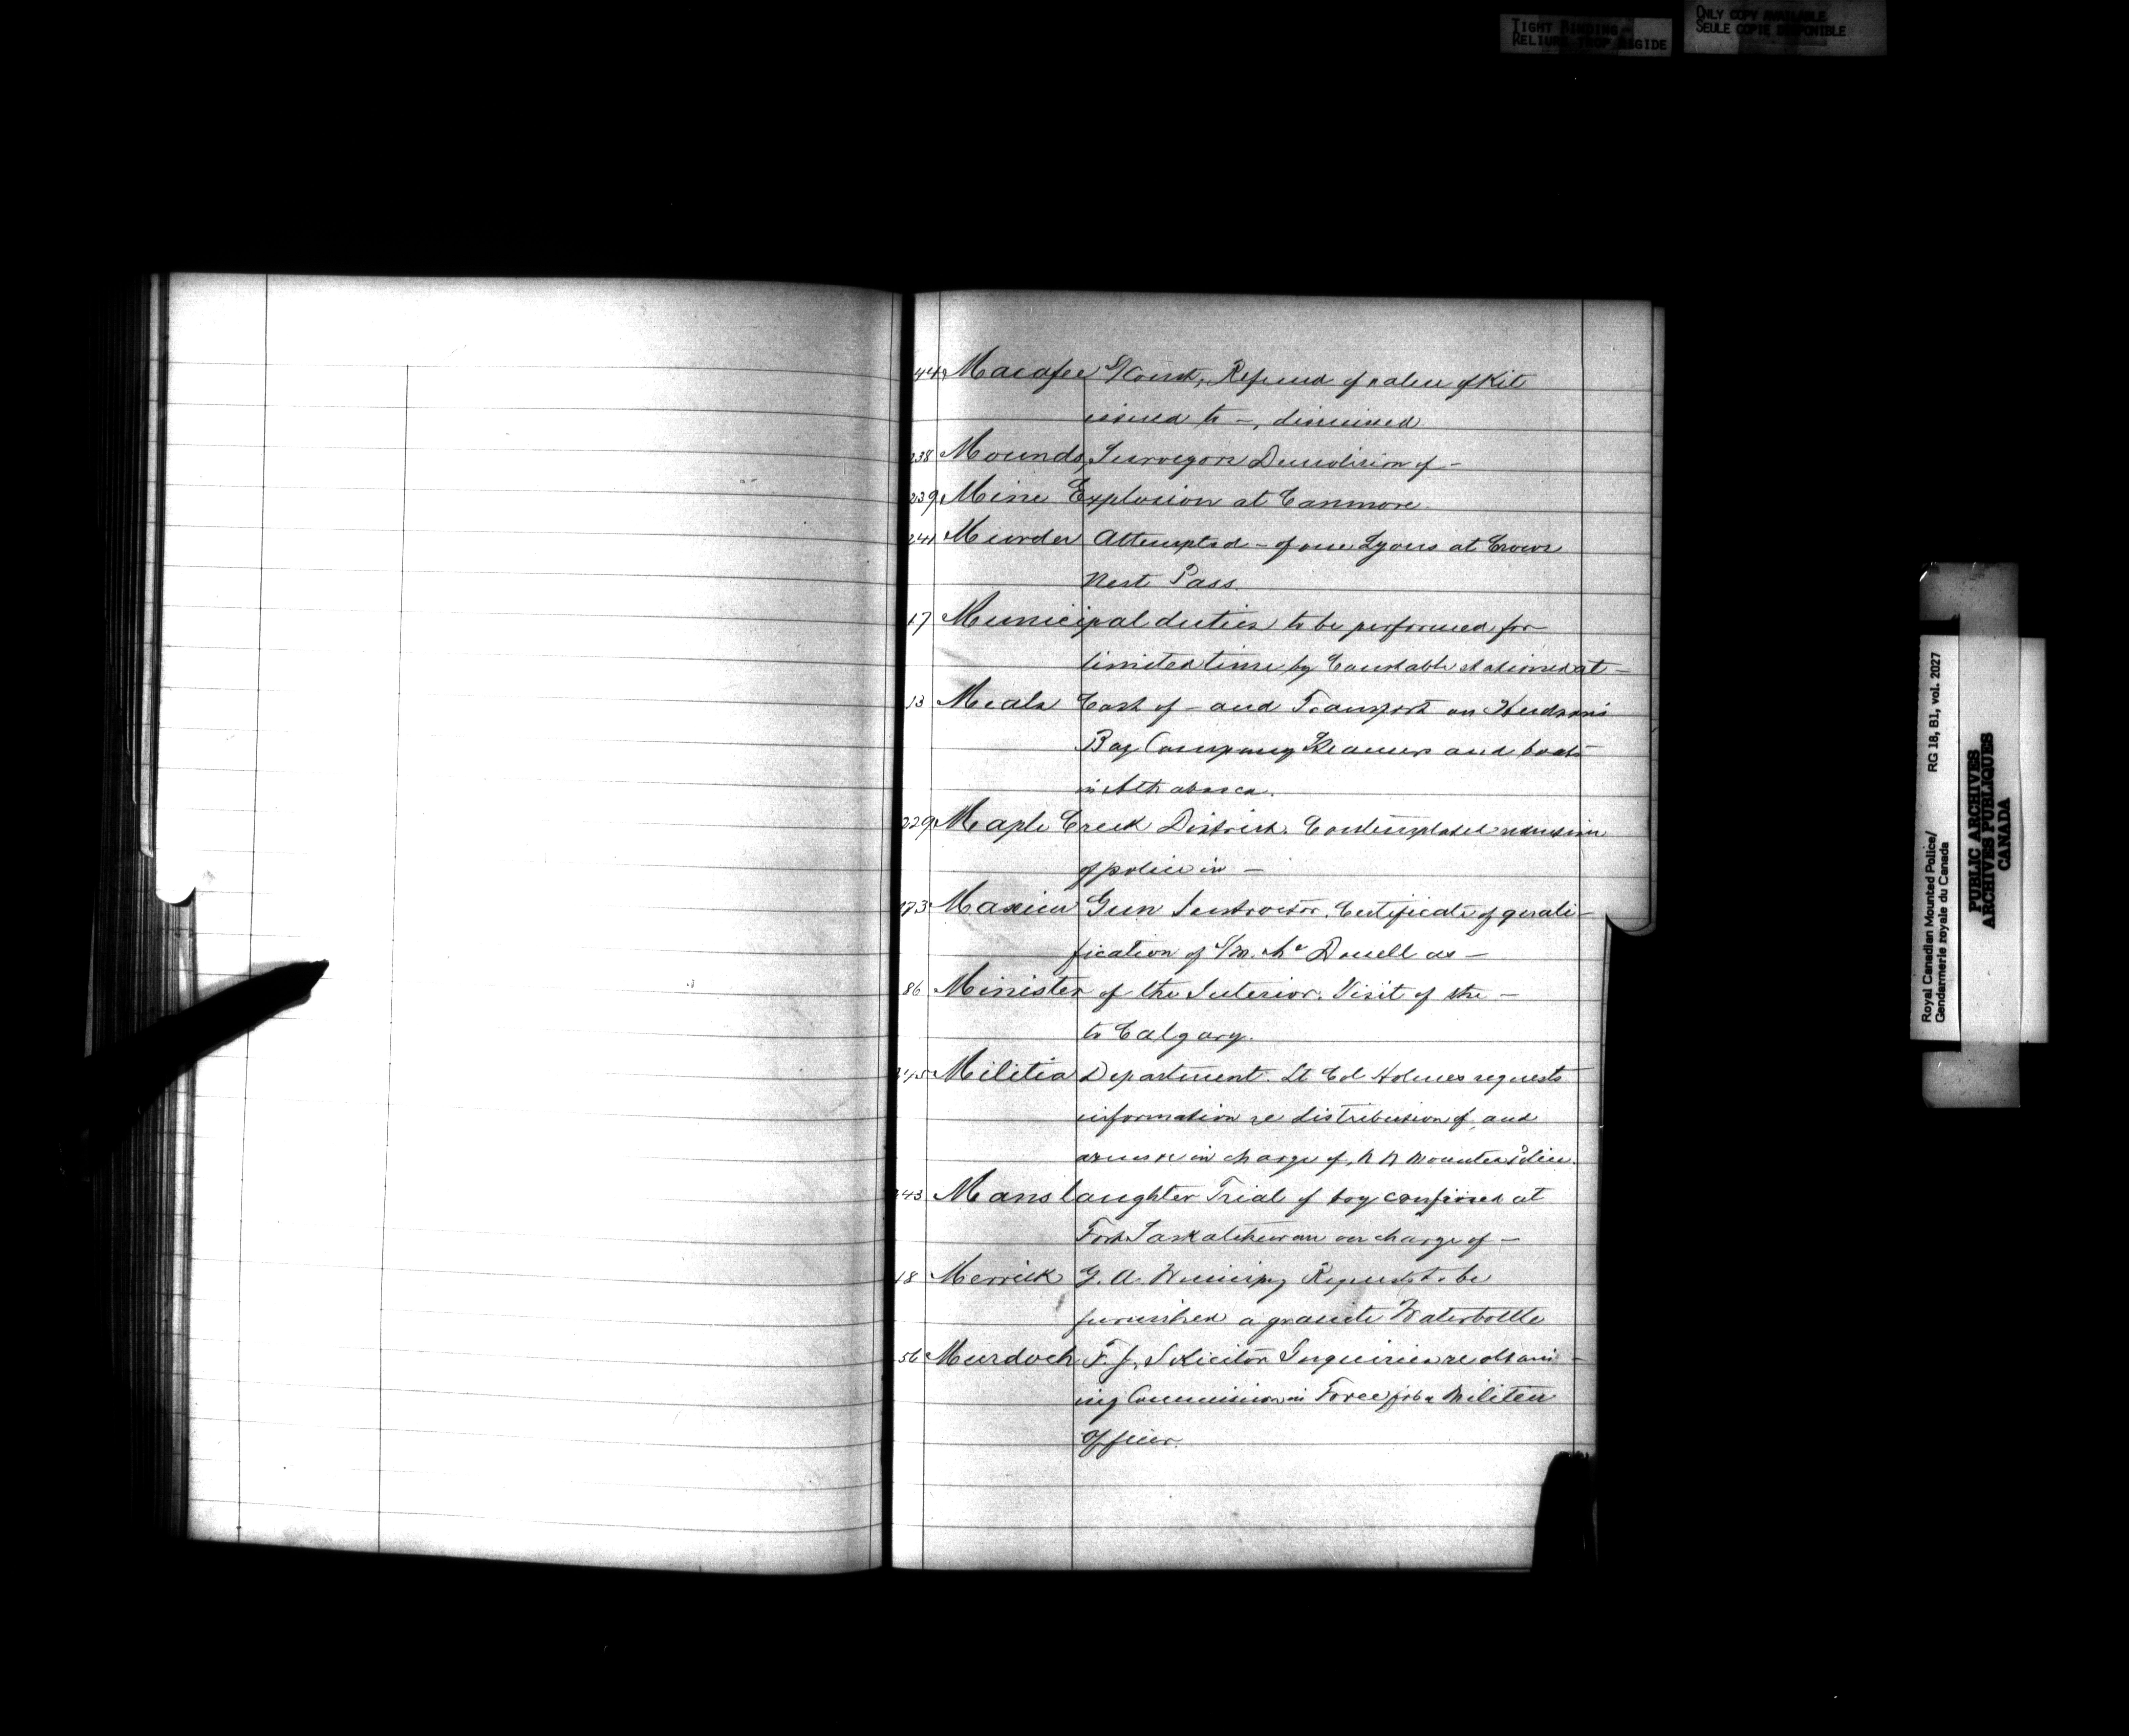 TIGHT BINDING
RELIURE TROP RIGIDE
ONLY COPY AVAILABLE
SEULE COPIE DISPONIBLE
44 Macafee S/Const, Refund of value of Kit
issued to –, dismissed
238 Mounds, Surveyors Demolition of –
239 Mine Explosion at Canmore.
241 Murder Attempted – of one Lyons at Crows
Nest Pass.
17 Municipal duties to be performed for
limited time by Constable stationed at –
13 Meals Cost of – and Transport on Hudson's
Bay Company Steamers and boats
in Athabasca.
229 Maple Creek District. Contemplated reduction
of police in –
173 Maxim Gun Instructor. Certificate of quali–
fication of S/M. Mc Donell as –
86 Minister of the Interior. Visit of the –
to Calgary.
245 Militia Department. Lt Col Holmes requests
information re distribution of, and
arms in charge of, N W Mounted Police.
243 Manslaughter Trial of boy confined at
Fort Saskatchewan on charge of –
18 Merrick G. A. Winnipeg Requests to be
furnished a granite Waterbottle
56 Murdoch F. J. Solicitor Inquiries re obtain–
ing Commission in Force for a Militia
Officer.
Royal Canadian Mounted Police/ RG 18, B1, vol. 2027
Gendarmerie royale du Canada
PUBLIC ARCHIVES
ARCHIVES PUBLIQUES
CANADA